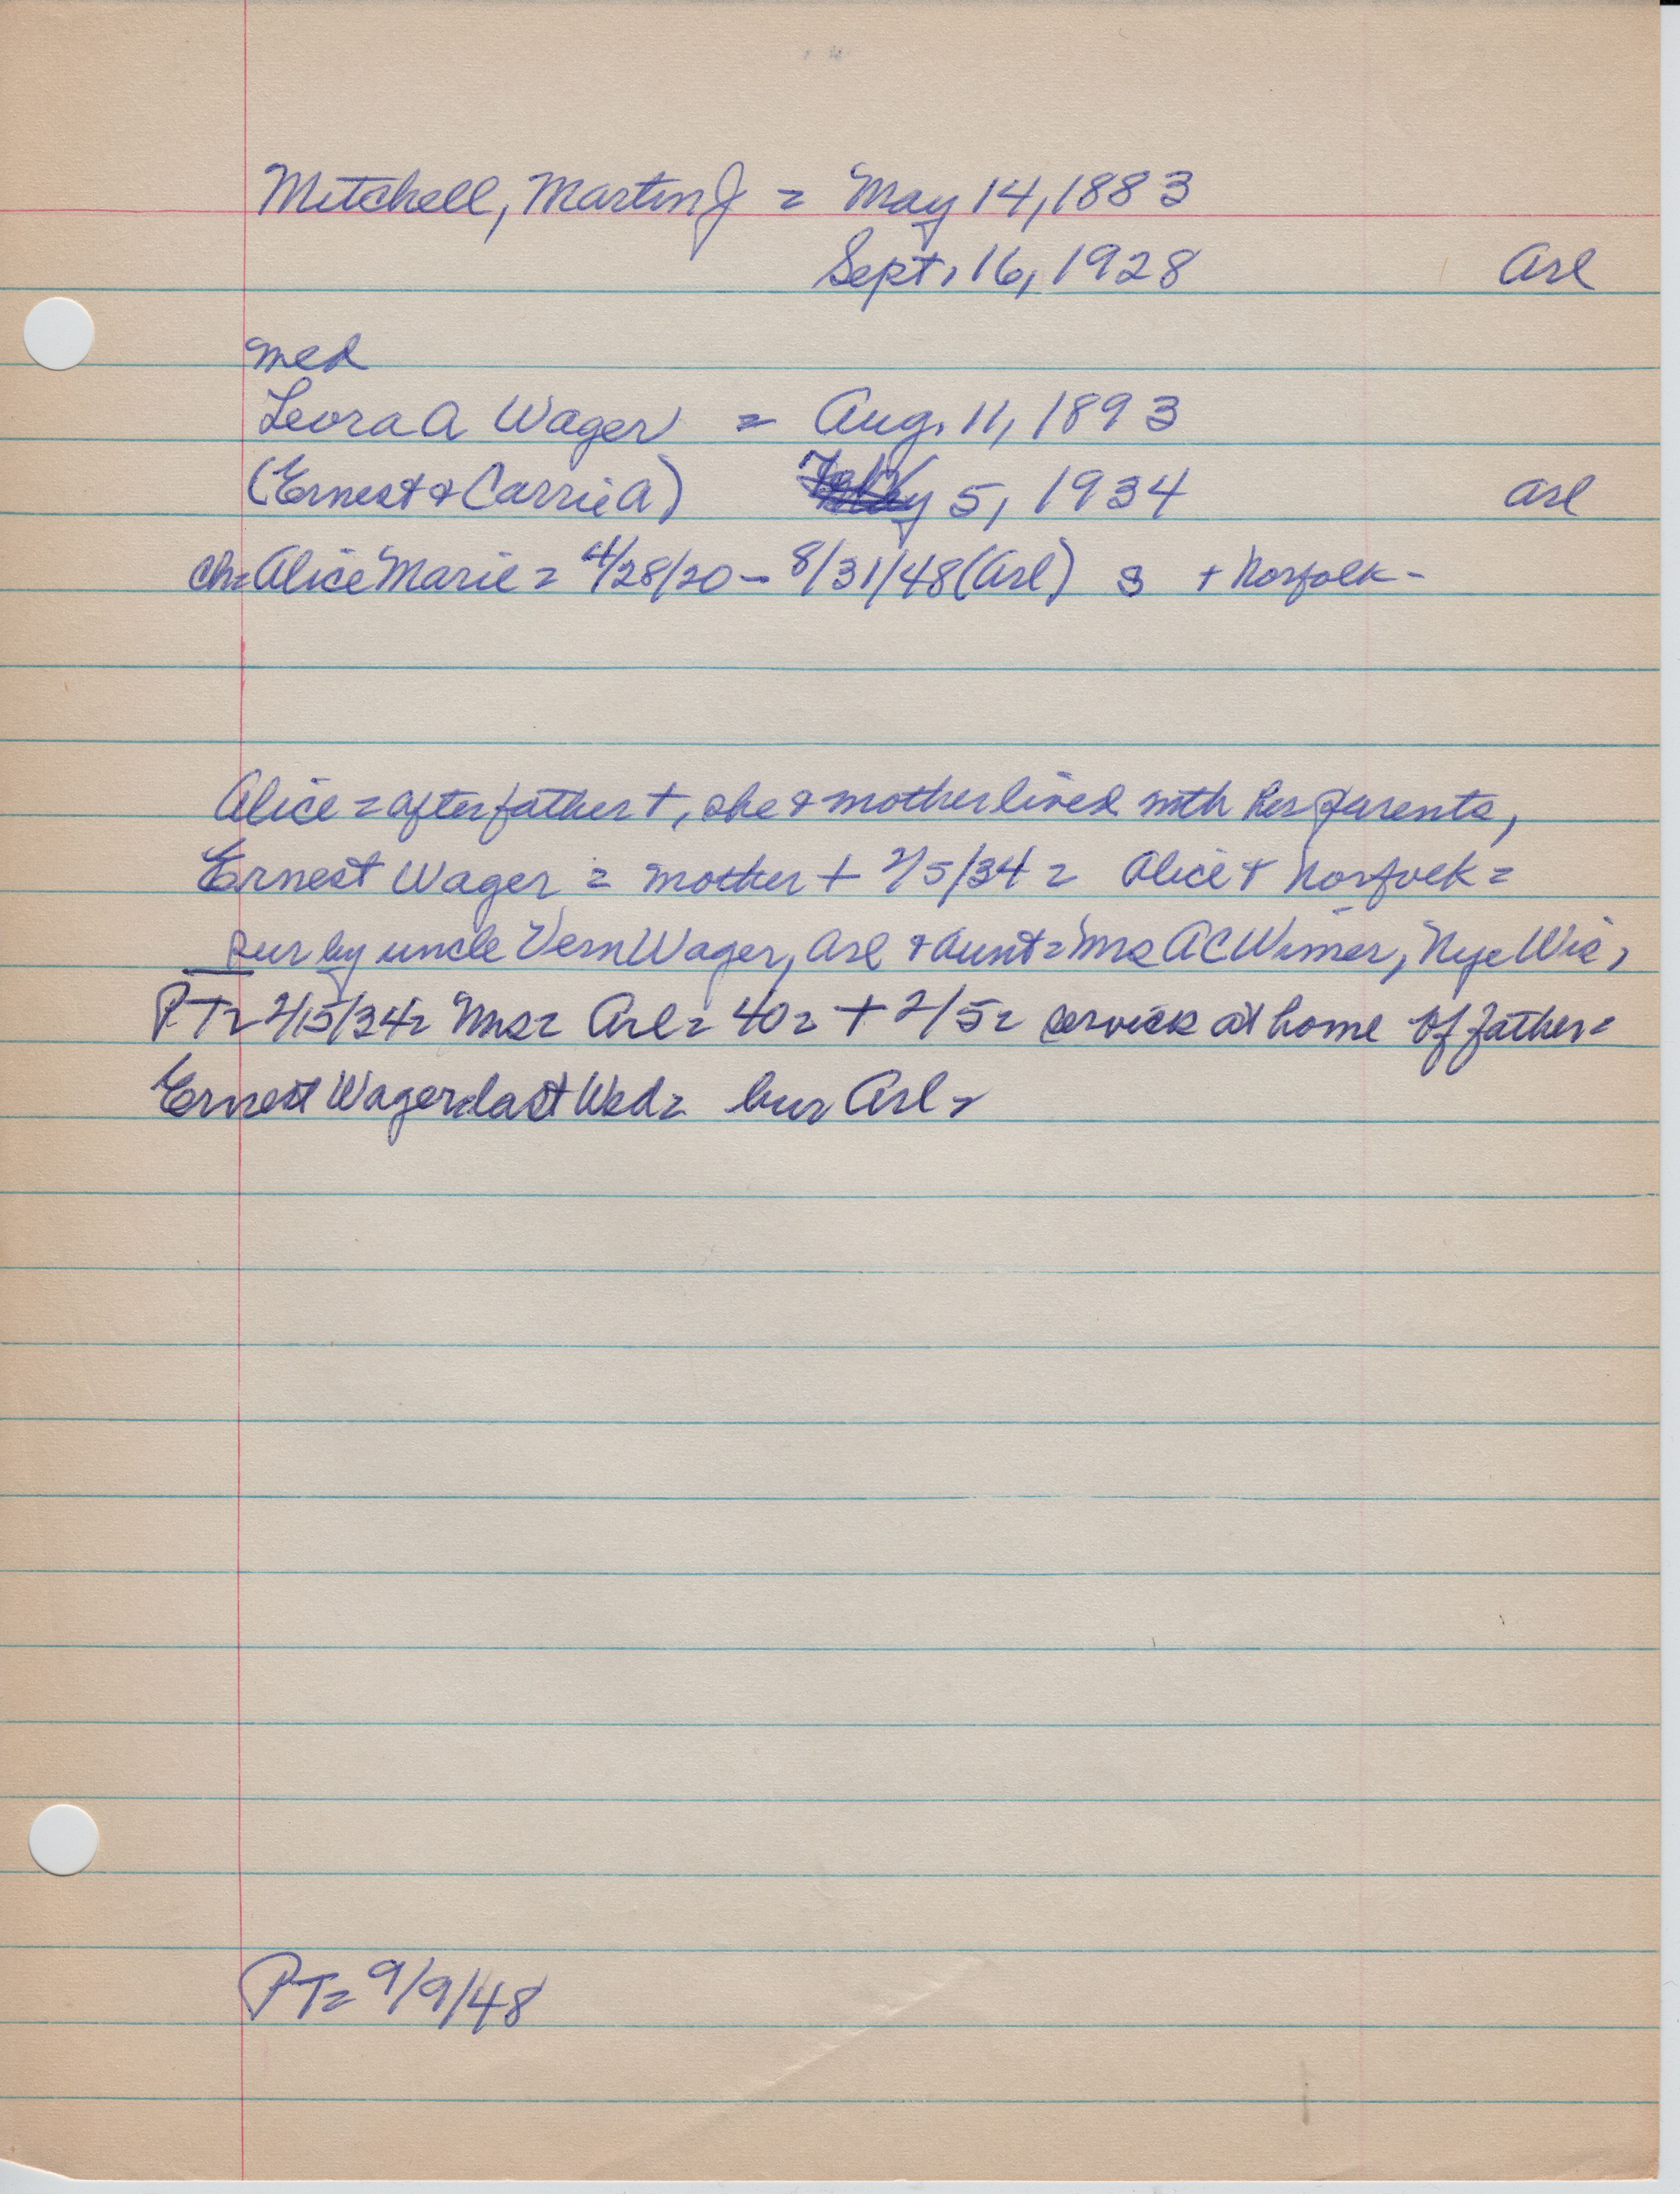 Mitchell, Martin J = May 14, 1883
Sept. 16, 1928 Arl
med
Leora A Wager = Aug. 11, 1893
(Ernest & Carrie A) 5, 1934 Arl
ch= Alice Marie = 4/28/20 - 8/31/48 (Arl) s + Norfolk -
Alice = after father +, she & mother lived with her parents,
Ernest Wager = mother + 2/5/34 = Alice + Norfolk =
sur by uncle Vern Wager, Arl & aunt = Mrs AC Wimer, Nye Wis,
PT= 2/15/34= Mrs= Arl= 40= + 2/5= service at home of father=
Ernest Wager last Wed= bur Arl=
PT= 9/9/48